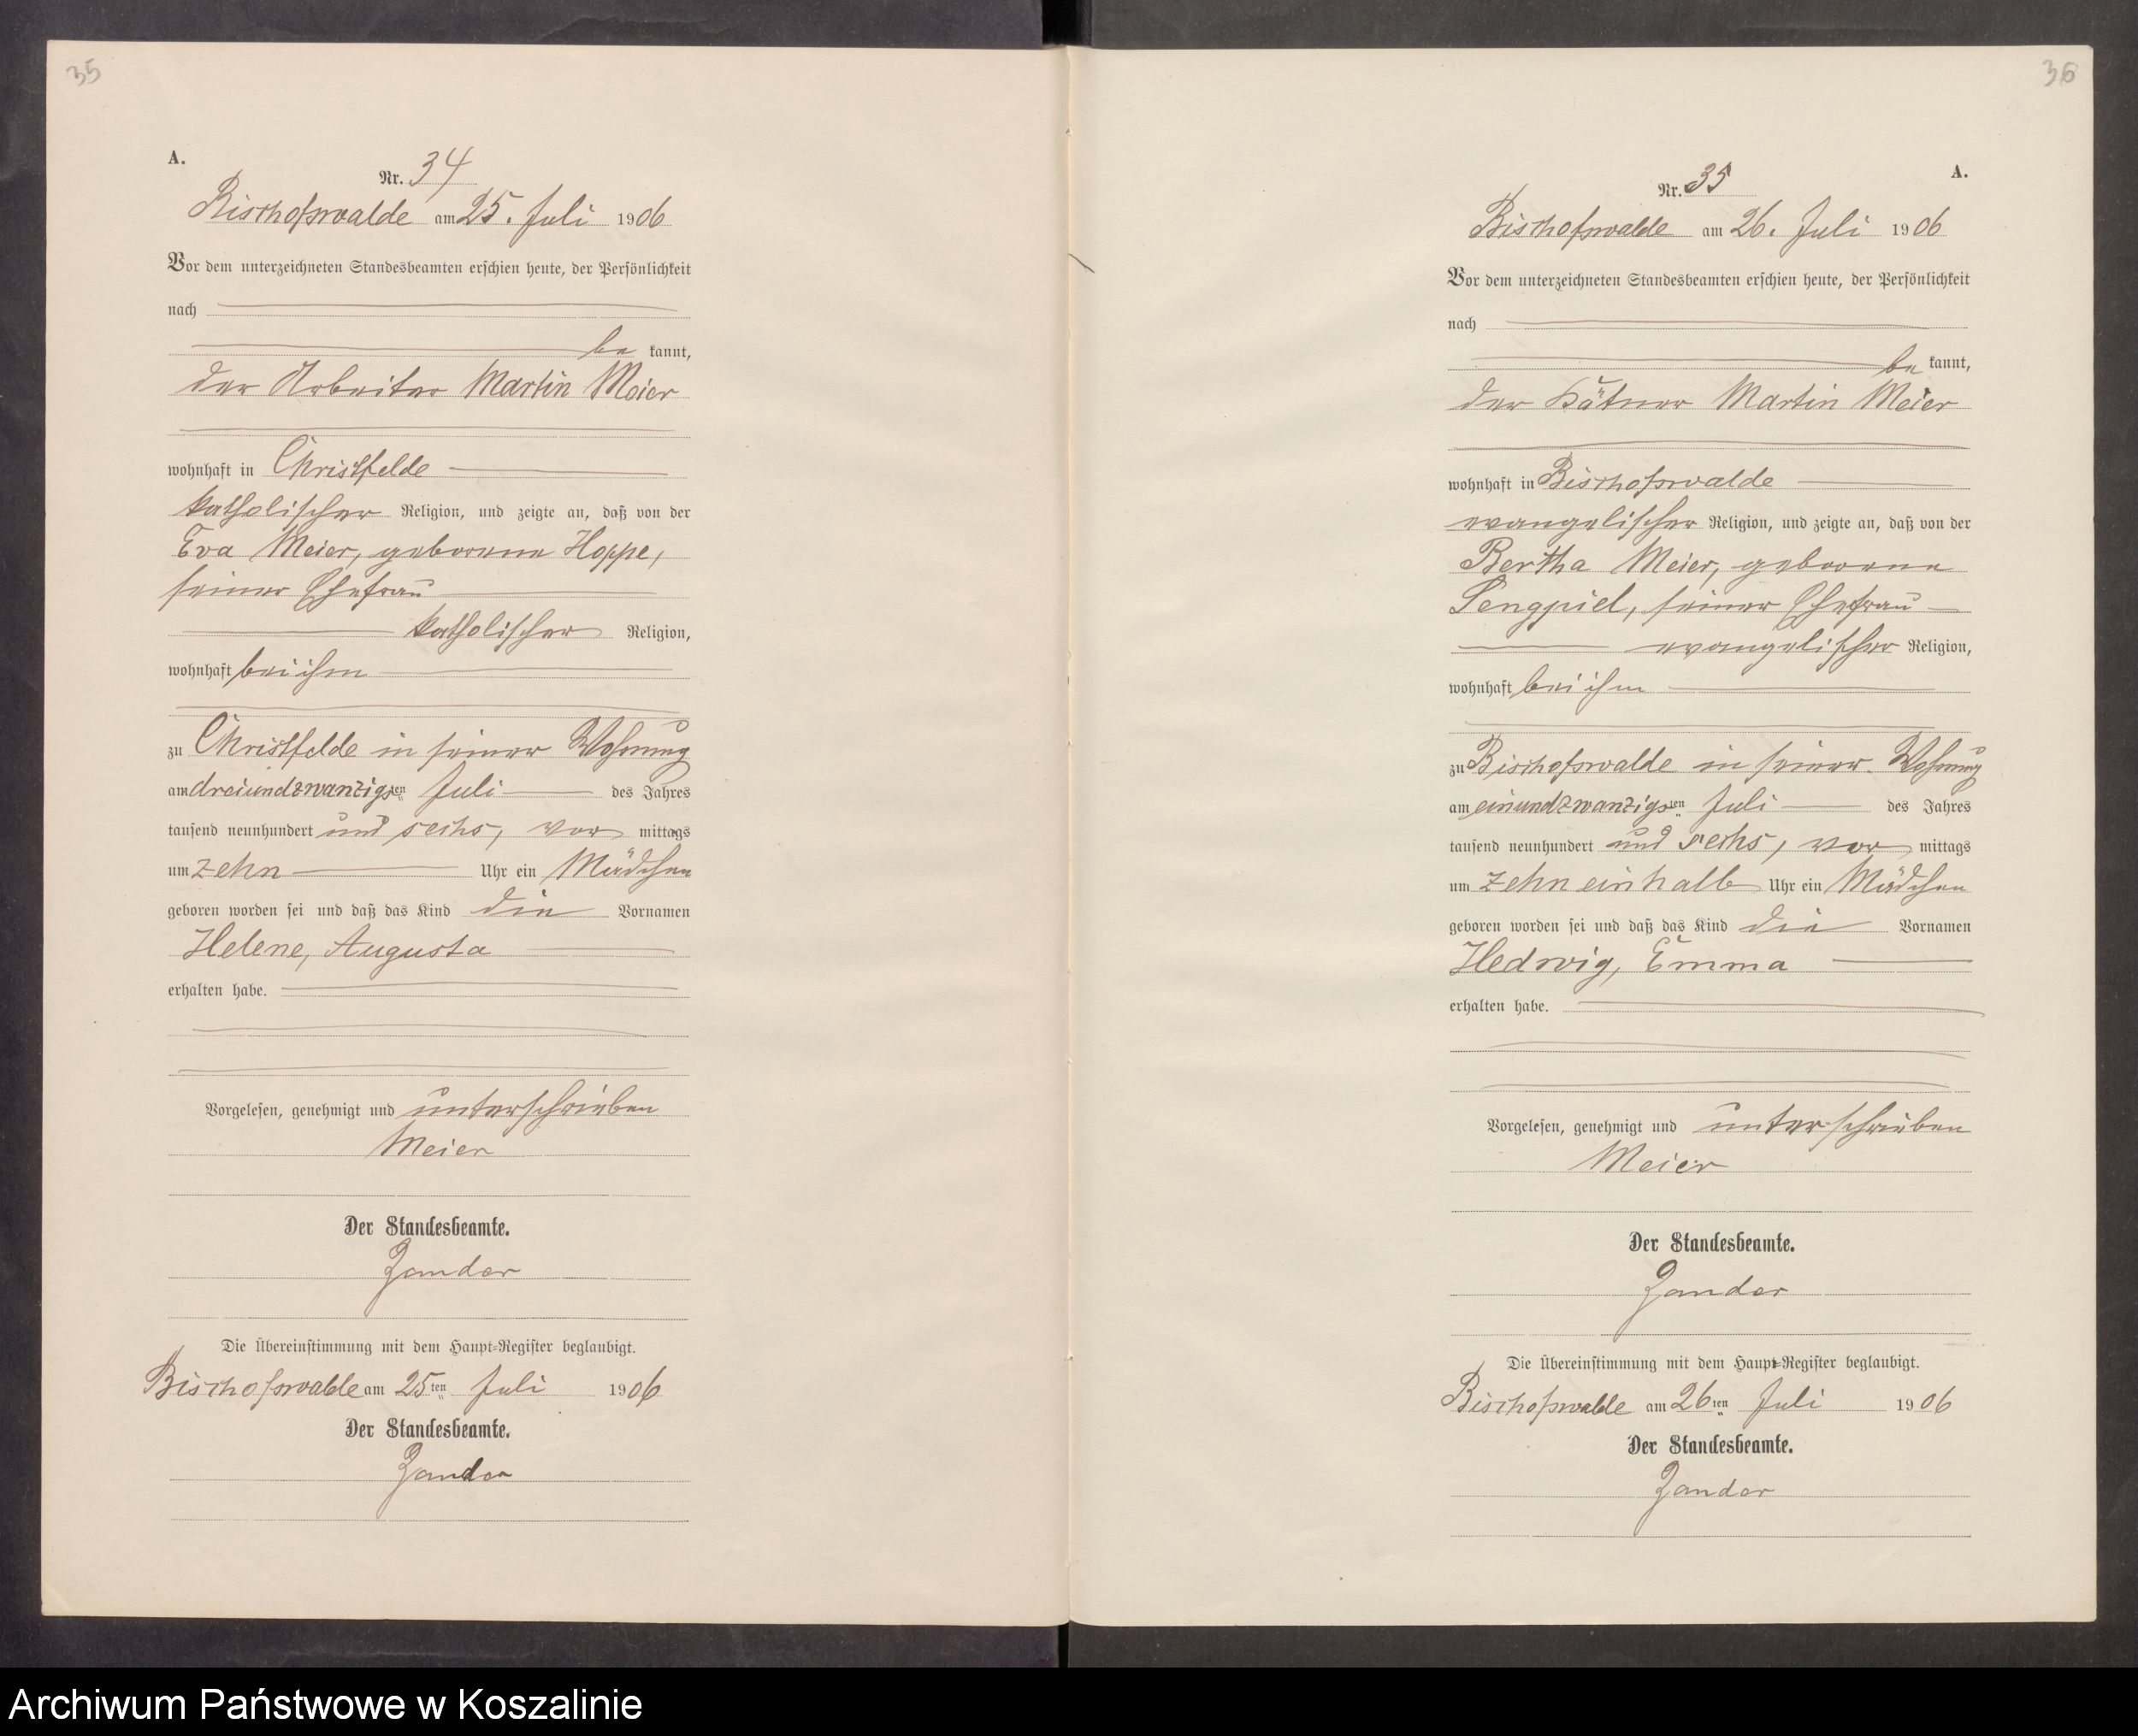 35
A.
Nr. 34
Bischofswalde am 25. Juli 1906
Vor dem unterzeichneten Standesbeamten erschien heute, der Persönlichkeit
nach
be kannt,
der Arbeiter Martin Meier
wohnhaft in Christfelde
katholischer Religion, und zeigte an, daß von der
Eva Meier, geborene Hoppe,
seiner Ehefrau
katholischer Religion,
wohnhaft bei ihm
zu Christfelde in seiner Wohnung
am dreiundzwanzigsten Juli des Jahres
tausend neunhundert und sechs, vor mittags
um zehn Uhr ein Mädchen
geboren worden sei und daß das Kind die Vornamen
Helene, Augusta
erhalten habe.
Vorgelesen, genehmigt und unterschrieben
Meier
Der Standesbeamte.
Zander
Die Übereinstimmung mit dem Haupt-Register beglaubigt.
Bischofswalde am 25ten Juli 1906
Der Standesbeamte.
Zander
36
A.
Nr. 35
Bischofswalde am 26. Juli 1906
Vor dem unterzeichneten Standesbeamten erschien heute, der Persönlichkeit
nach
be kannt,
der Kätner Martin Meier
wohnhaft in Bischofswalde
evangelischer Religion, und zeigte an, daß von der
Bertha Meier, geborene
Sengpiel, seiner Ehefrau
evangelischer Religion,
wohnhaft bei ihm
zu Bischofswalde in seiner Wohnung
am einundzwanzigsten Juli des Jahres
tausend neunhundert und sechs, vor mittags
um zehn einhalb Uhr ein Mädchen
geboren worden sei und daß das Kind die Vornamen
Hedwig, Emma
erhalten habe.
Vorgelesen, genehmigt und unterschrieben
Meier
Der Standesbeamte.
Zander
Die Übereinstimmung mit dem Haupt-Register beglaubigt.
Bischofswalde am 26ten Juli 1906
Der Standesbeamte.
Zander
Archiwum Państwowe w Koszalinie